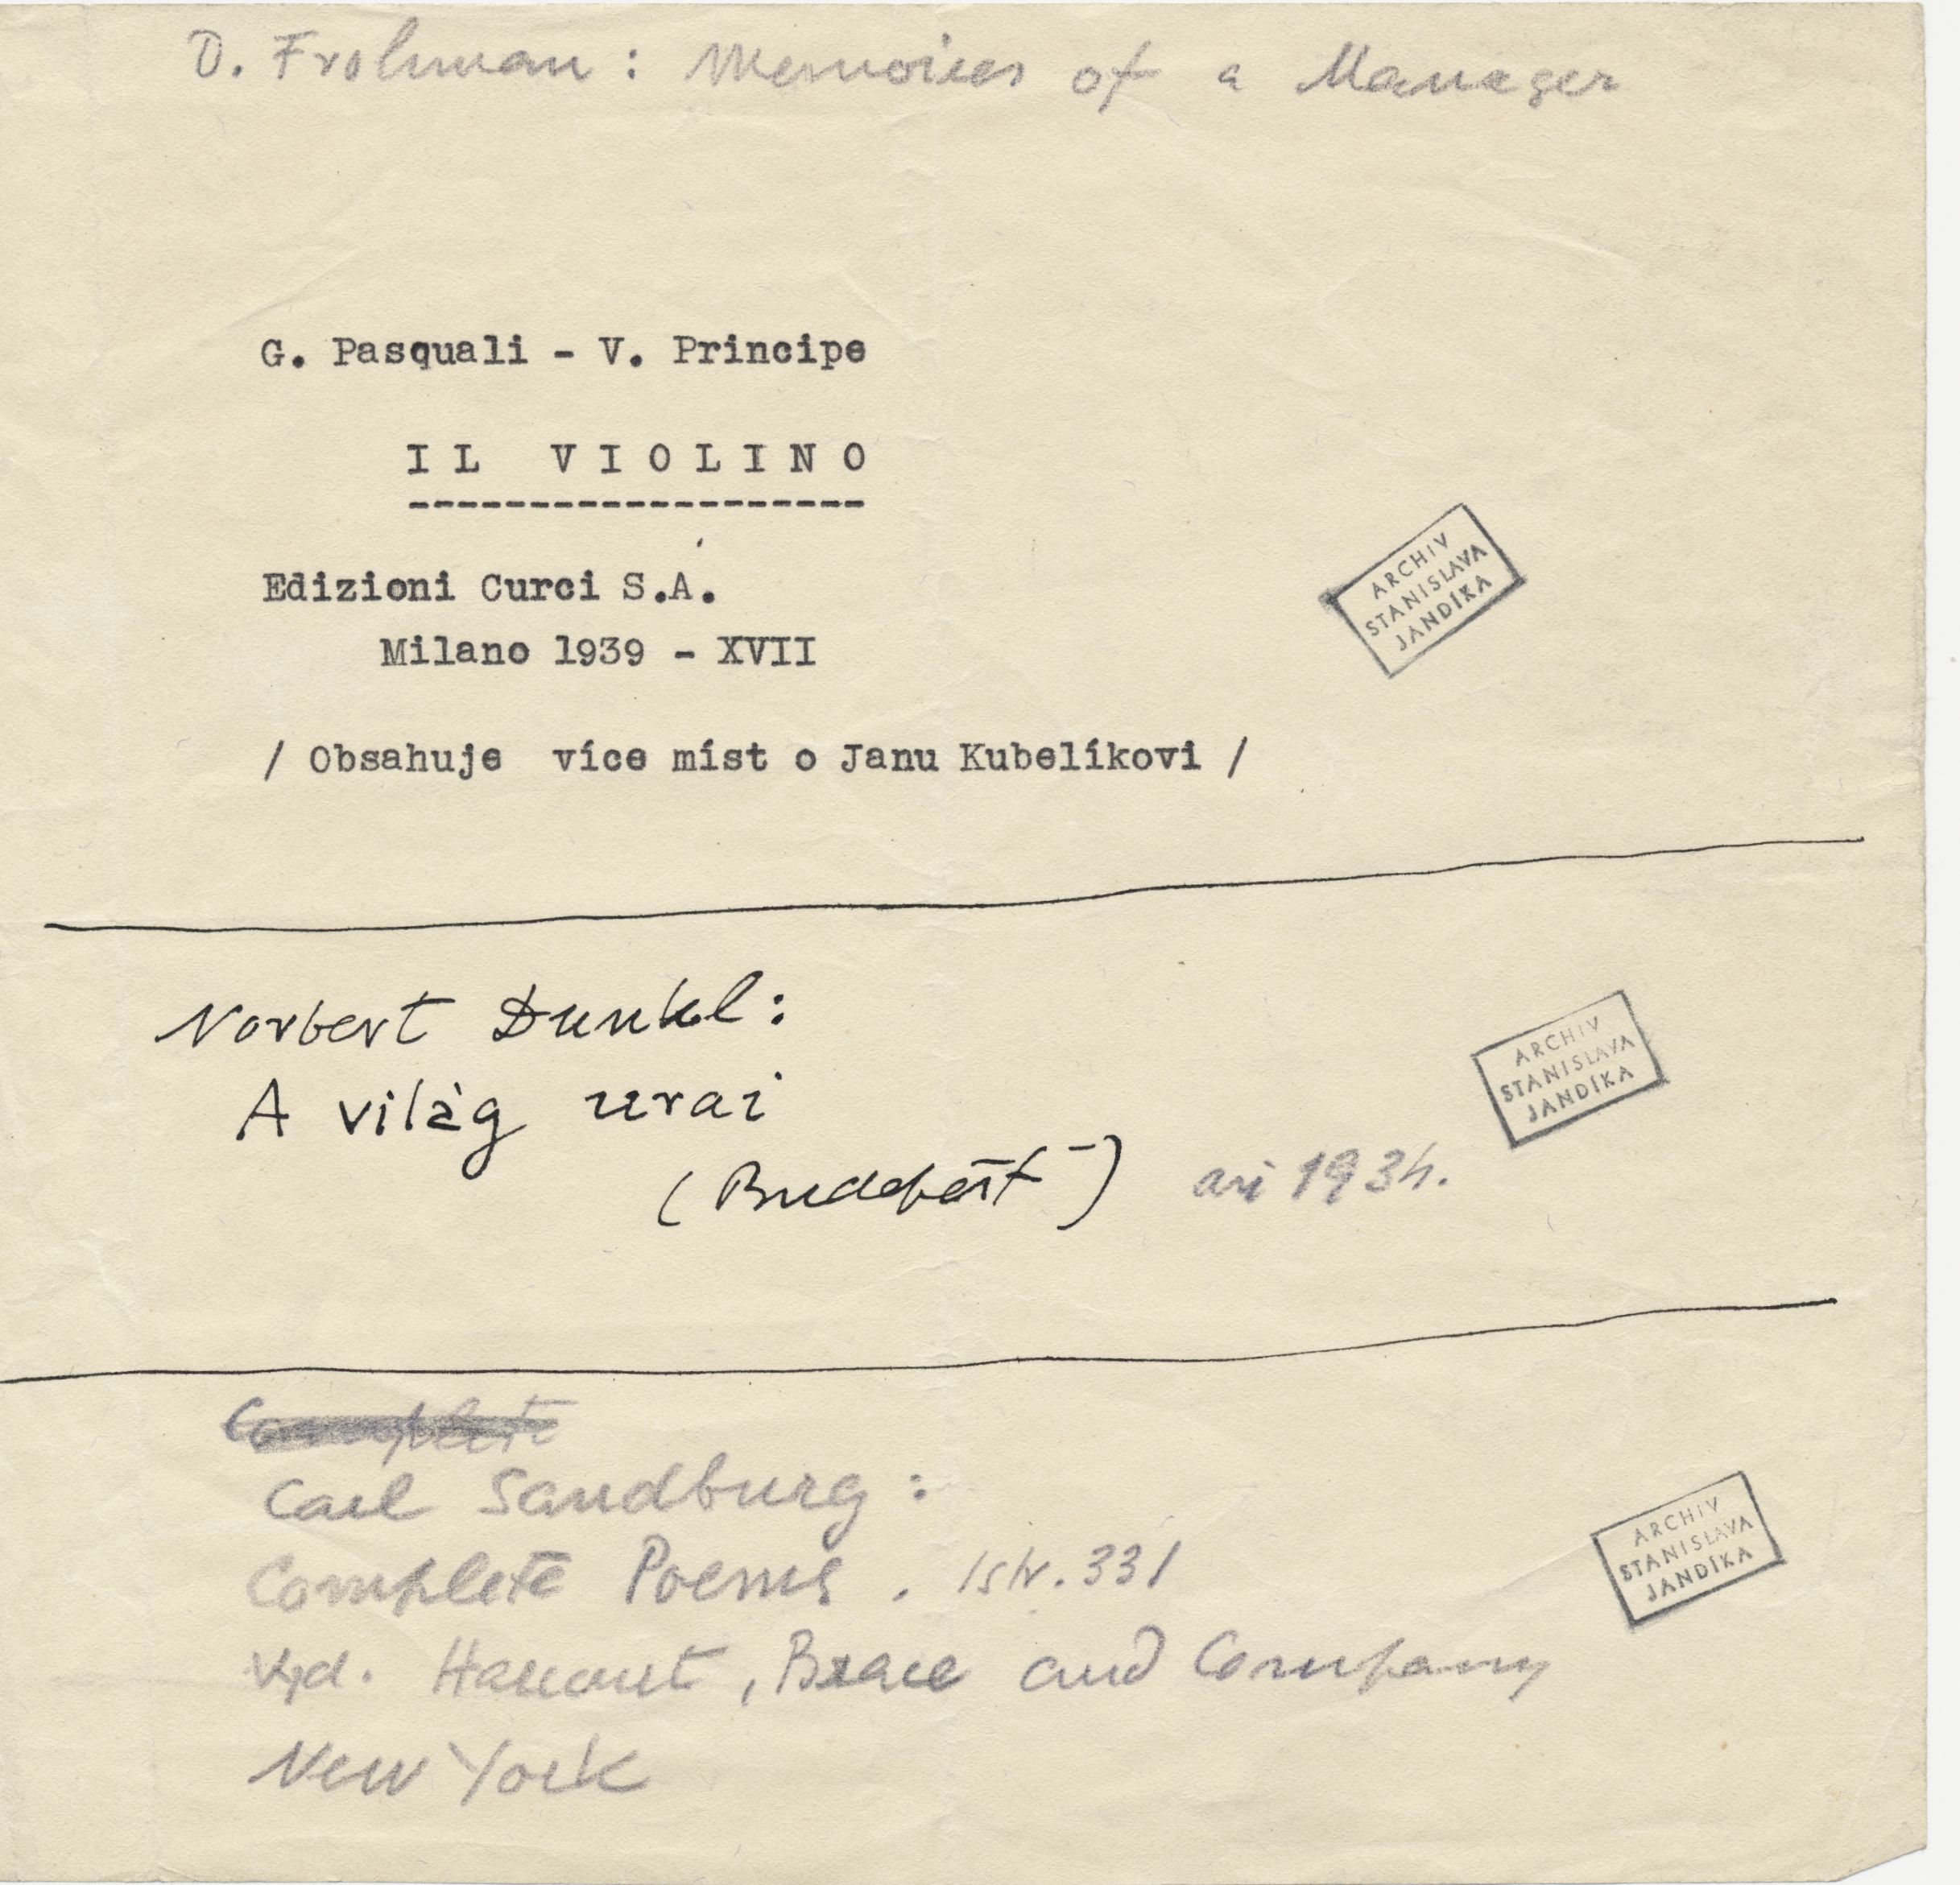 D. Frohman : Memoires of a Manager
G. Pasquali - V. Principe
IL VIOLINO
Edizioni Curci S.A.
Milano 1939 - XVII
ARCHIV
STANISLAVA
JANDÍKA
/ Obsahuje více míst o Janu Kubelíkovi /
Norbert Dunkl:
A világ urai
(Budapešť) asi 1934.
ARCHIV
STANISLAVA
JANDÍKA
Complete
Carl Sandburg :
Complete Poems . /str. 331
Vyd. Harcourt, Brace and Company
New York
ARCHIV
STANISLAVA
JANDÍKA